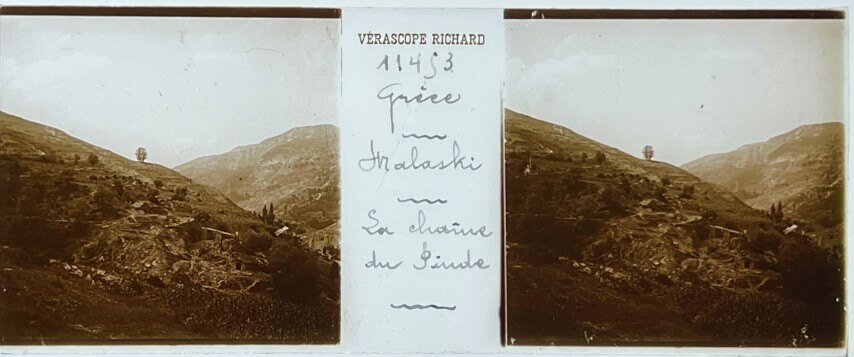 VÉRASCOPE RICHARD
11453
Grèce
Malaski
La chaîne
du Pinde